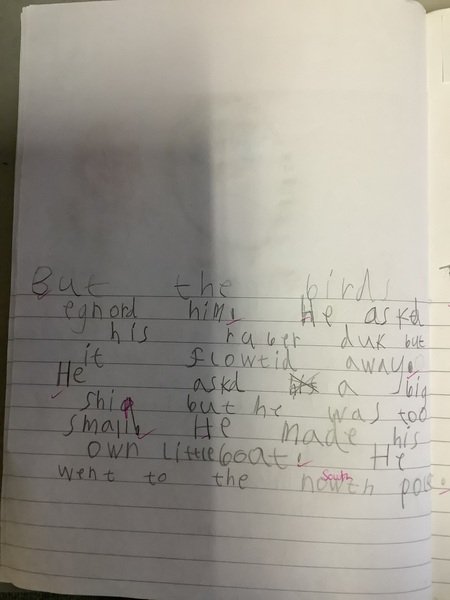 But the birds
egnord him. He askd
his ruber duk but
it flowtid away.
He askd a big
ship but he was too
small. He made his
own little boat. He
South
went to the nowth pole.